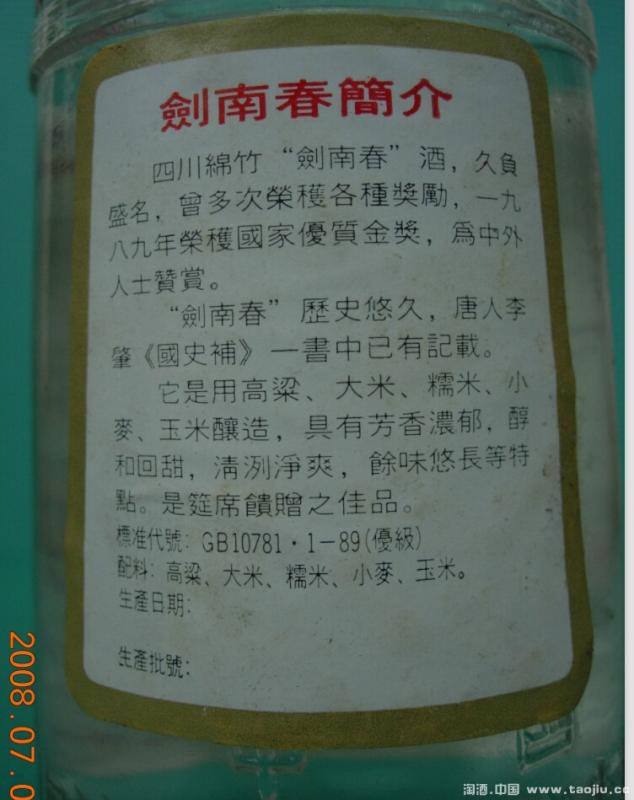 劍南春簡介
四川綿竹“劍南春”酒，久負
盛名，曾多次榮獲各種獎勵，一九
八九年榮獲國家優質金獎，為中外
人士贊賞。
“劍南春”歷史悠久，唐人李
肇《國史補》一書中已有記載。
它是用高粱、大米、糯米、小
麥、玉米釀造，具有芳香濃郁，醇
和回甜，清洌淨爽，餘味悠長等特
點。是筵席饋贈之佳品。
標准代號：GB10781·1-89(優級)
配料：高粱、大米、糯米、小麥、玉米。
生產日期：
生產批號：
2008.07.0
淘酒.中国 www.taojiu.co